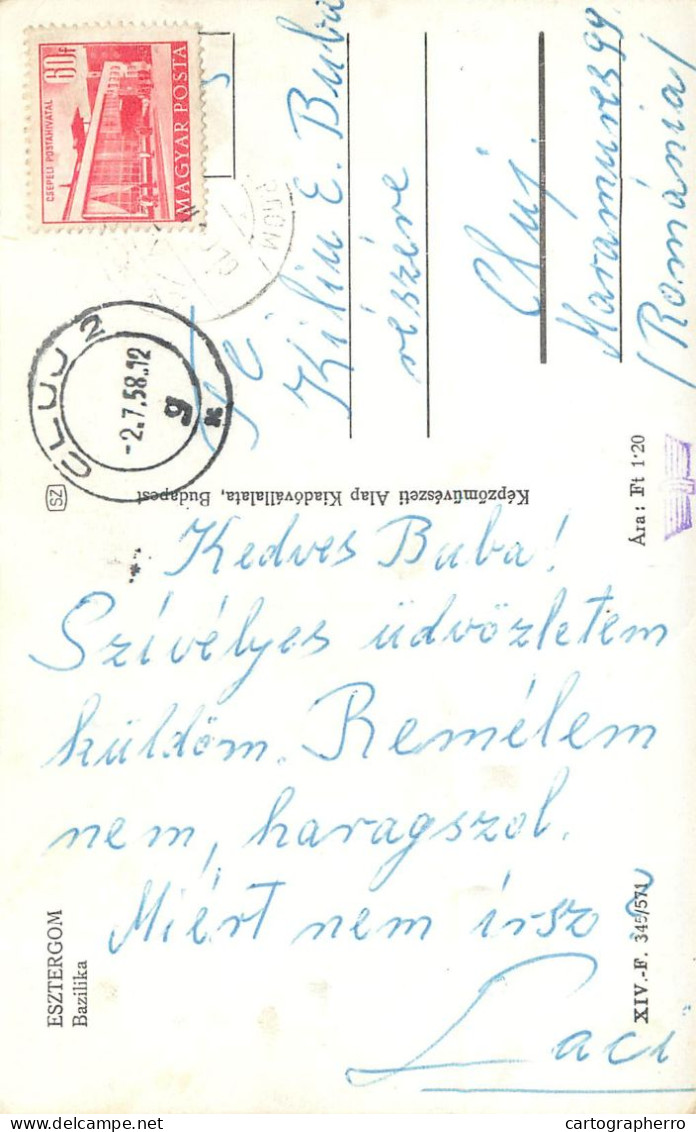 60f
CSEPELI POSTAHIVATAL
MAGYAR POSTA
CLUJ 2
-2.7.58.12
g
Kilin E. Buba
részére
Cluj.
/România/
SZ
Képzőművészeti Alap Kiadóvállalata, Budapest
Ára: Ft 1·20
Kedves Buba!
Szívélyes üdvözletem
küldöm. Remélem
nem, haragszol.
Miért nem írsz
Laci
ESZTERGOM
Bazilika
XIV.-F. 345/571
cartographerro